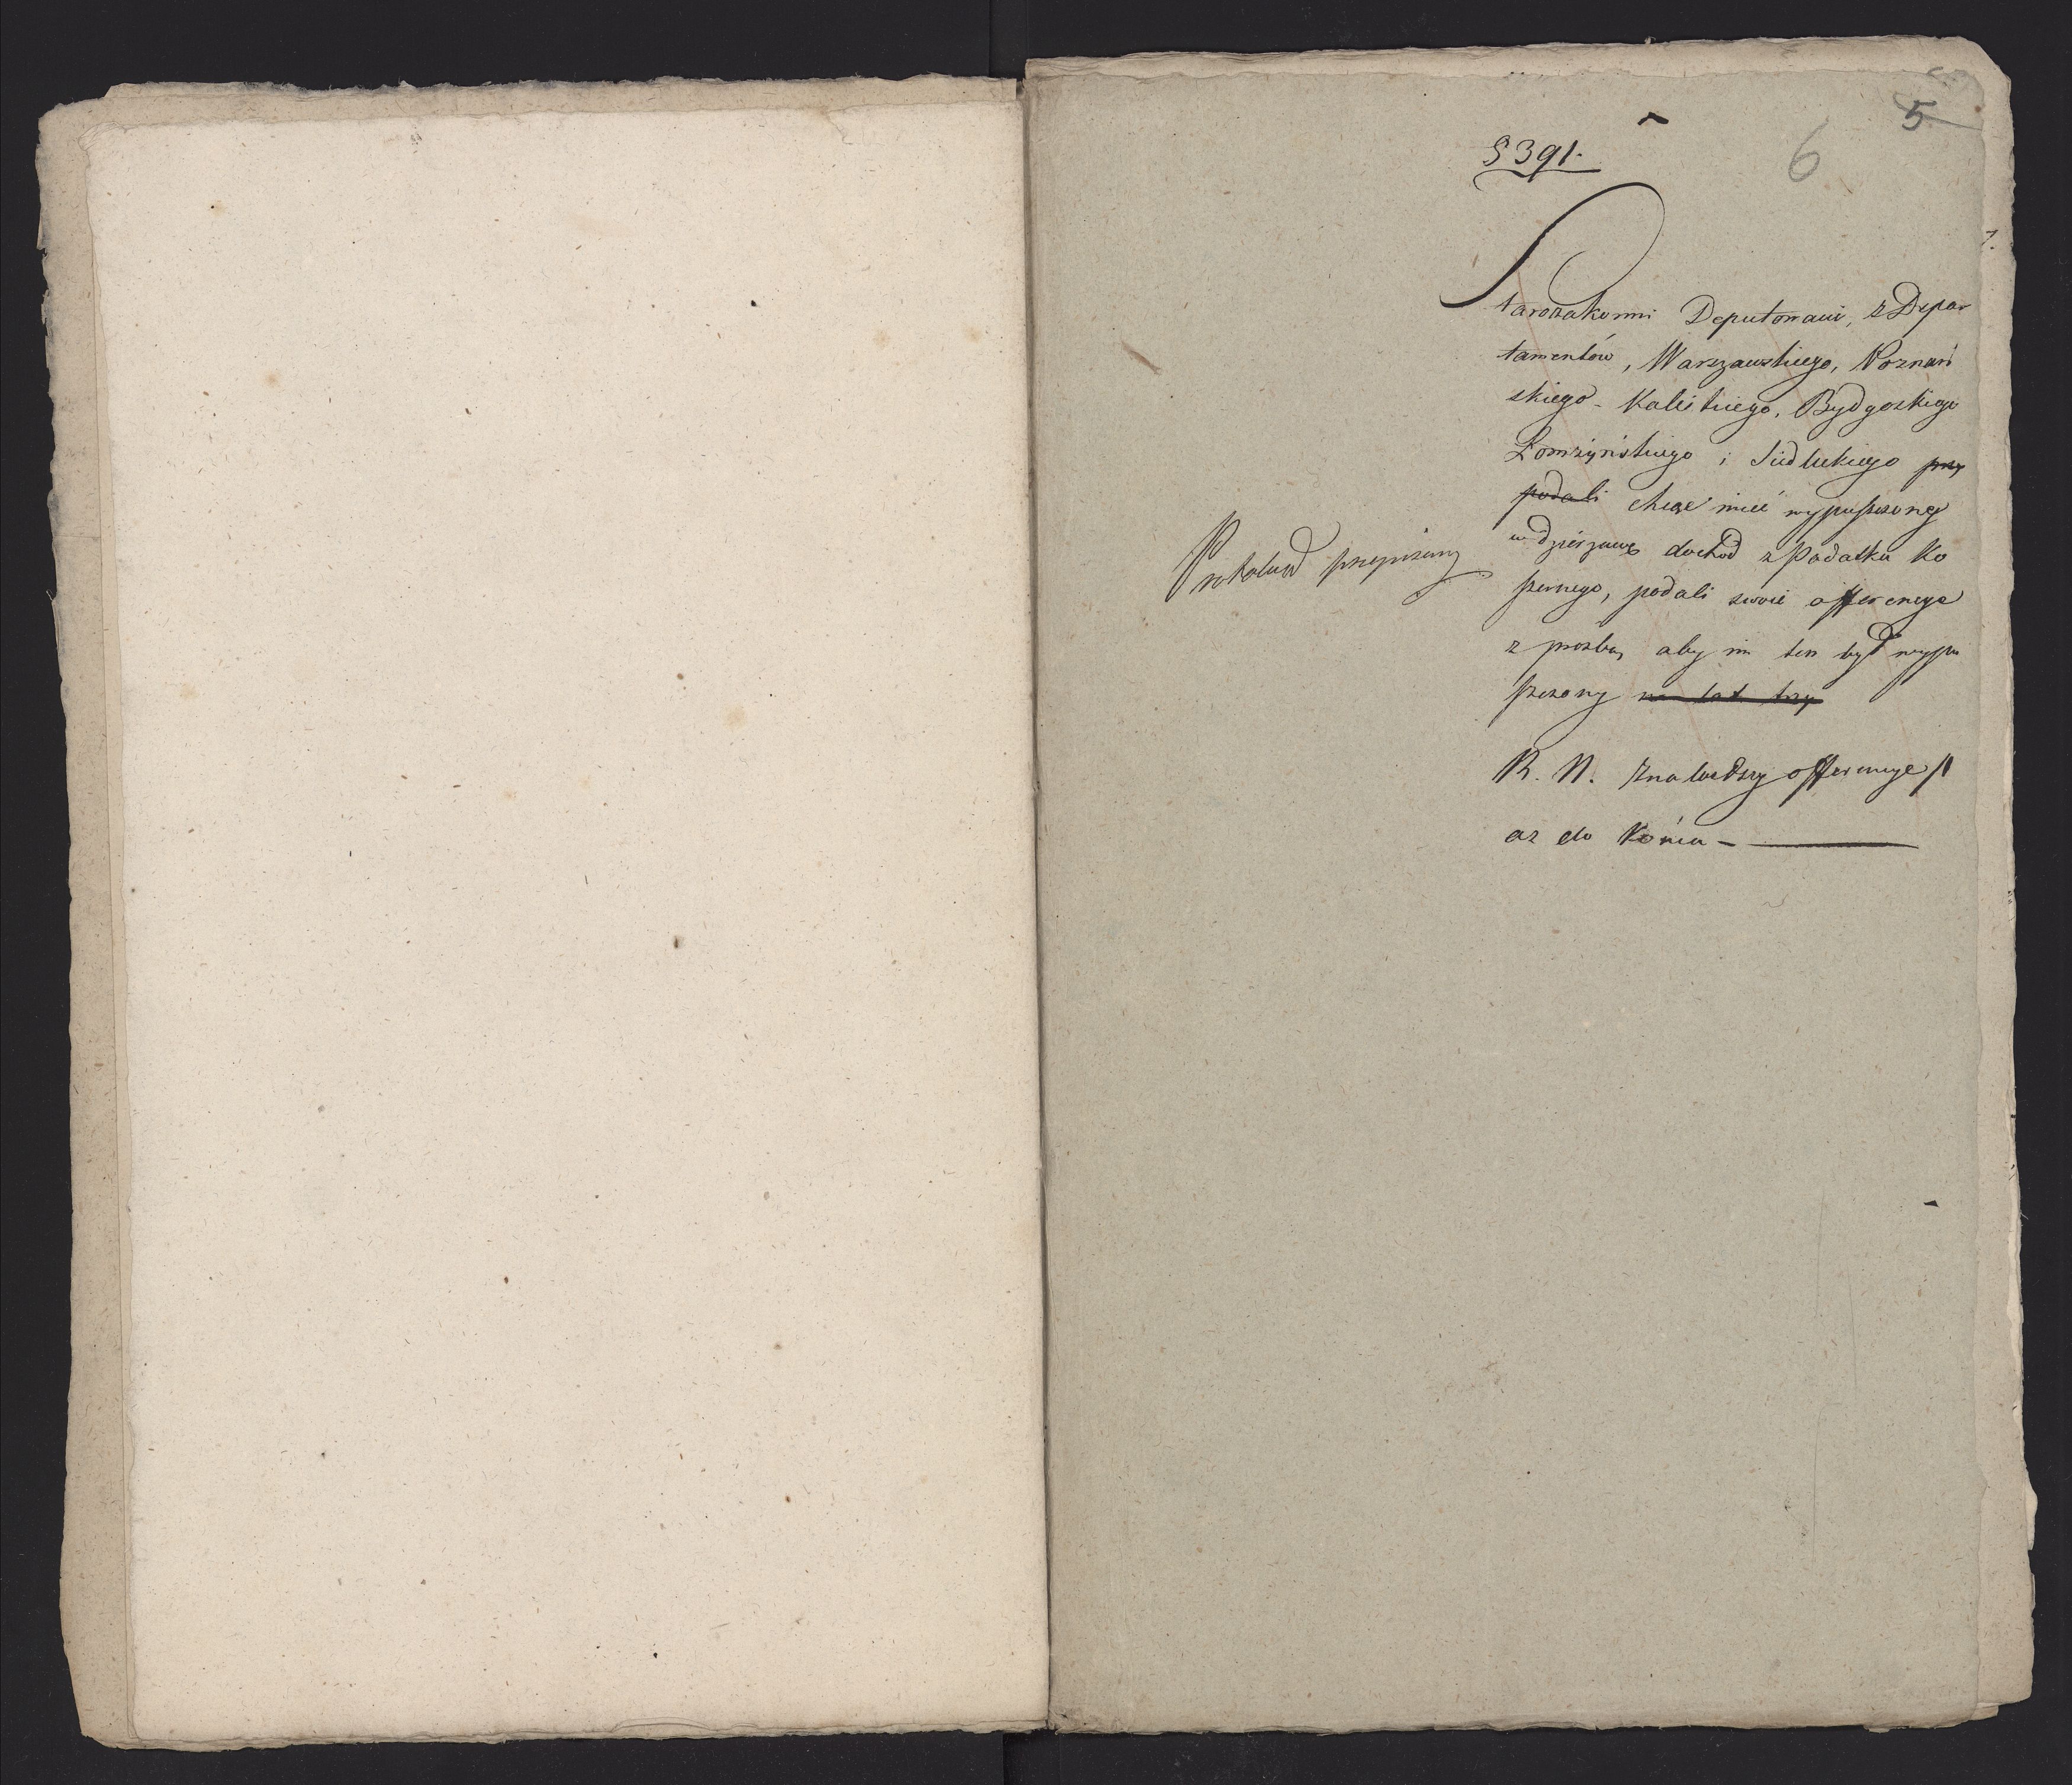 5
6
§ 391.
Starozakonni Deputowani, z Depar
tamentów, Warszawskiego, Poznań
skiego - Kaliskiego, Bydgoskiego
Łomżyńskiego i Siedleckiego przy
podali chcąc mieć wypuszczony
w dzierżawę dochód z Podatku Ko
szernego, podali swoie offerencye
z prośbą, aby im ten był wypu
szczony na lat trzy
R. N. znalazłszy offerencye
aż do końca -
Protokuł przepisany